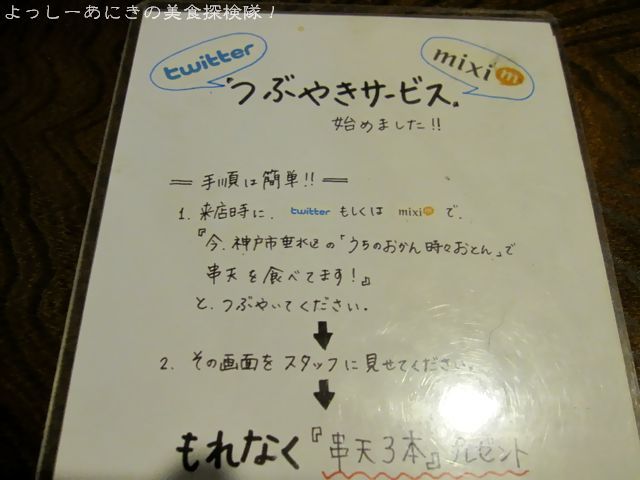 よっしーあにきの美食探検隊！
twitter
mixi m
"つぶやきサービス"
始めました!!
== 手順は簡単!! ==
1. 来店時に、twitter もしくは mixi m で、
『今、神戸市垂水区の「うちのおかん時々おとん」で
串天を食べてます！』
と、つぶやいてください。
2. その画面をスタッフに見せてください。
もれなく『串天3本』プレゼント